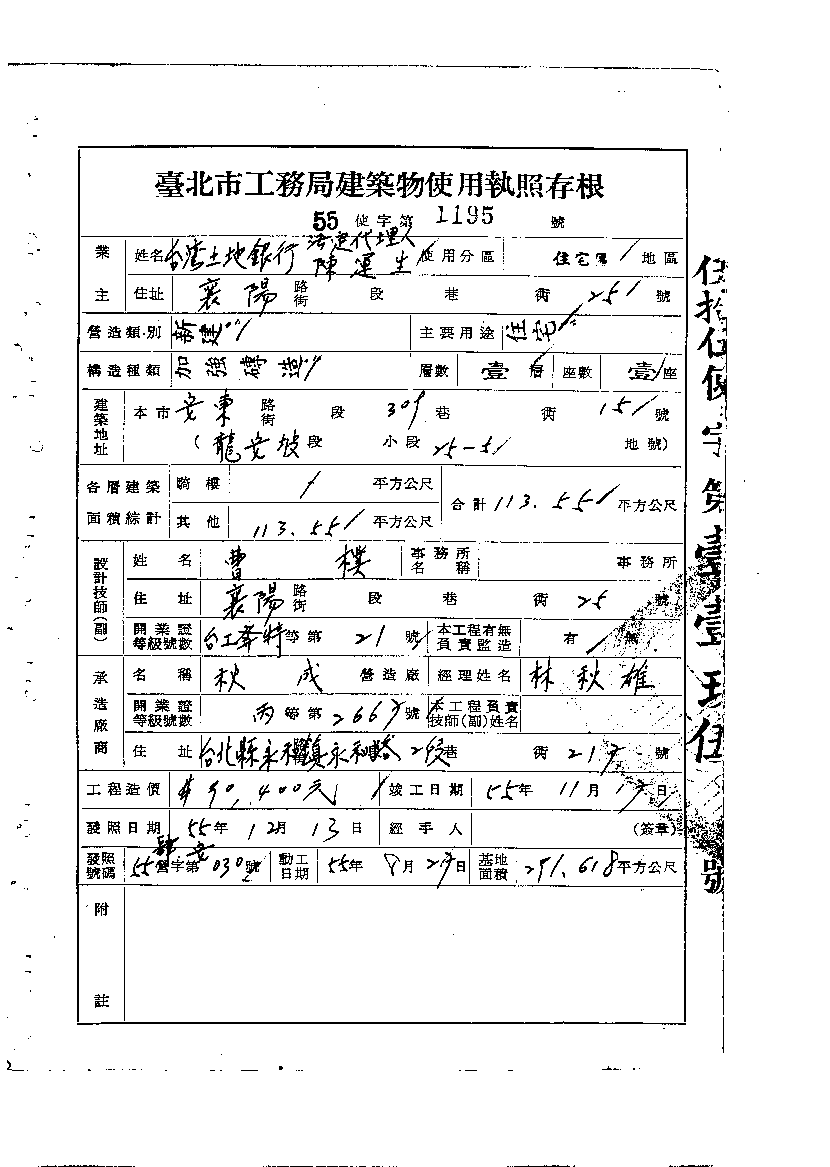 臺北市工務局建築物使用執照存根
55 使字第 1195 號
業主 姓名 台湾土地銀行 法定代理人 陳運生 使用分區 住宅區 地區
住址 襄陽 路街 段 巷 衖 25 號
營造類別 新建 主要用途 住宅
構造種類 加強磚造 層數 壹層 座數 壹座
建築地址 本市 安東 路街 段 309 巷 衖 15 號
(龍安坡段 小段 25-5 地號)
各層建築面積綜計 騎樓 / 平方公尺 合計 113.55 平方公尺
其他 113.55 平方公尺
設計技師(副) 姓名 曹樸 事務所名稱 事務所
住址 襄陽 路街 段 巷 衖 25 號
開業證等級號數 台工 等第 21 號 本工程有無負責監造 有 無
承造廠商 名稱 秋成 營造廠 經理姓名 林秋雄
開業證等級號數 丙等第 2667 號 本工程負責技師(副)姓名
住址 台北縣永和鎮永和路 2段 巷 衖 217 號
工程造價 90,400元 竣工日期 55年 11月 17日
發照日期 55年 12月 13日 經手人 (簽章)
發照號碼 55營字第 030 號 動工日期 55年 8月 27日 基地面積 291.618 平方公尺
附註
伍拾伍使字第壹壹玖伍號